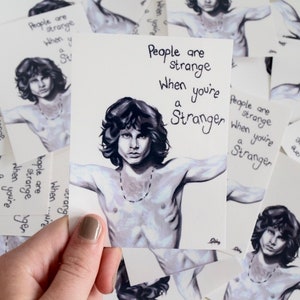 People are
strange
When you're
a
Stranger
People are
strange
When you're
a
Stranger
People are
strange
When you're
a
Stranger